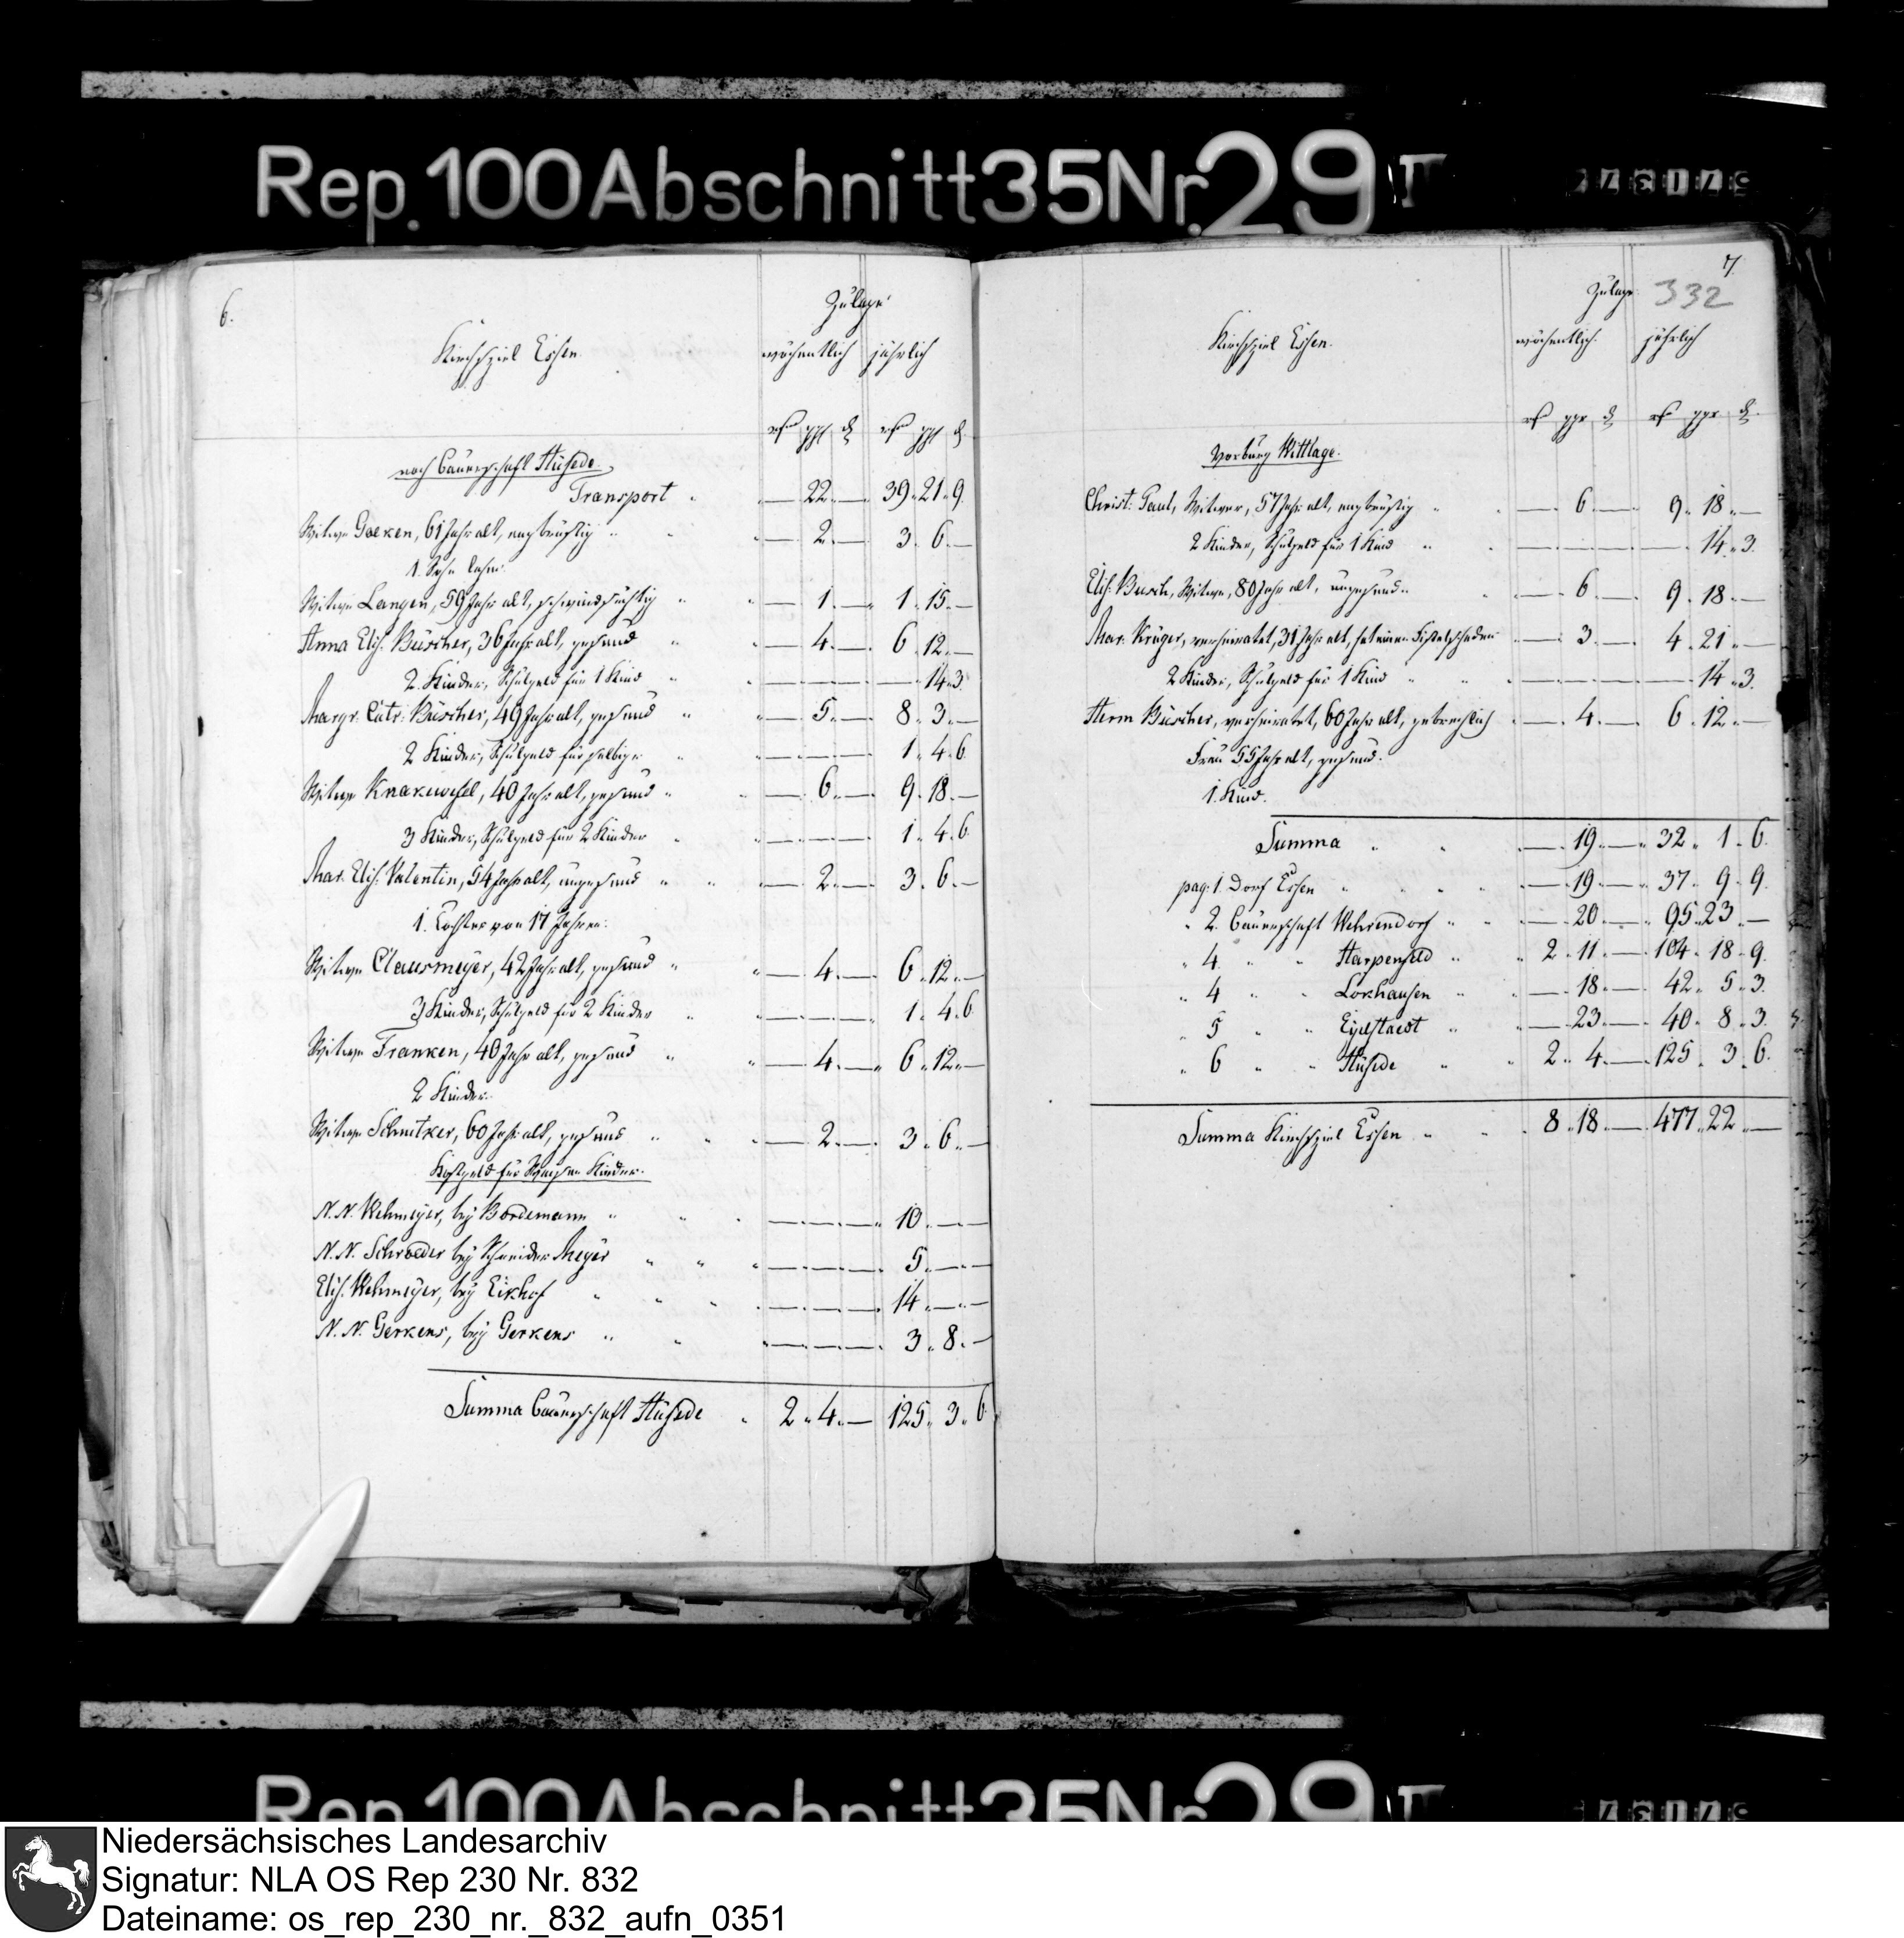 Rep. 100 Abschnitt 35 Nr. 29 II
6.
Kirchspiel Essen.
Zulage
wöchentlich jährlich
rh ggl d rh ggl d
noch Bauerschaft Hüsede.
Transport " — 22. — 39. 21. 9.
Witwe Goeken, 61 Jahr alt, engbrüstig " " — 2. — 3. 6. —
1. Sohn lahm.
Witwe Langen, 59 Jahr alt, schwindsüchtig " " — 1. — 1. 15. —
Anna Elis. Büscher, 36 Jahr alt, gesund " " — 4. — 6. 12. —
2. Kinder, Schulgeld für 1 Kind " " — — — — 14. 3.
Margr. Catr. Büscher, 49 Jahr alt, gesund " " — 5. — 8. 3. —
2 Kinder, Schulgeld für selbige " " — — — 1. 4. 6.
Witwe Knakewefel, 40 Jahr alt, gesund " " — 6. — 9. 18. —
3 Kinder, Schulgeld für 2 Kinder " " — — — 1. 4. 6.
Mar. Elis. Valentin, 54 Jahr alt, ungesund " " — 2. — 3. 6. —
1. Tochter von 17 Jahren.
Witwe Clausmeyer, 42 Jahr alt, gesund " " — 4. — 6. 12. —
3 Kinder, Schulgeld für 2 Kinder " " — — — 1. 4. 6
Witwe Franken, 40 Jahr alt, gesund " " — 4. — 6. 12. —
2 Kinder.
Witwe Schnitker, 60 Jahr alt, gesund " " — 2. — 3. 6. —
Kostgeld für Waisen Kinder.
N. N. Wehmeyer, bey Bordemann " " — — — 10. — —
N. N. Schroeder bey Schneider Meyer " " — — — 5. — —
Elis. Wehmeyer, bey Eikhof " " — — — 14. — —
N. N. Gerkens, bey Gerkens " " — — — 3. 8. —
Summa Bauerschaft Hüsede " 2. 4. — 125. 3. 6.
7.
332
Kirchspiel Essen.
Zulage
wöchentlich. jährlich
rh ggr d rh ggr d.
Vorburg Wittlage.
Christ: Paul, Witwer, 57 Jahr alt, engbrüstig " " — 6. — 9. 18. —
2 Kinder, Schulgeld für 1 Kind " " — — — — 14. 3.
Elis. Busch, Witwe, 80 Jahr alt, ungesund " — 6. — 9. 18. —
Mar. Krüger, verheiratet, 31 Jahr alt, hat einen Fistelschaden — 3. — 4. 21. —
2 Kinder, Schulgeld für 1 Kind " " — — — — 14. 3.
Herm Büscher, verheiratet, 60 Jahr alt, gebrechlich — 4. — 6. 12. —
Frau 55 Jahr alt, gesund.
1. Kind.
Summa " " — 19. — 32. 1. 6.
pag: 1. Dorf Essen " " — 19. — 37. 9. 9.
" 2. Bauerschaft Wehrendorf " " — 20. — 95. 23. —
" 4 " " Harpenfeld " " 2. 11. — 104. 18. 9.
" 4 " " Lokhausen " " — 18. — 42. 5. 3.
" 5 " " Eyelstaedt " " — 23. — 40. 8. 3.
" 6 " " Hüsede " " 2. 4. — 125. 3. 6.
Summa Kirchspiel Essen " " 8. 18. — 477. 22. —
Rep. 100 Abschnitt 35 Nr. 29 II
Niedersächsisches Landesarchiv
Signatur: NLA OS Rep 230 Nr. 832
Dateiname: os_rep_230_nr._832_aufn_0351